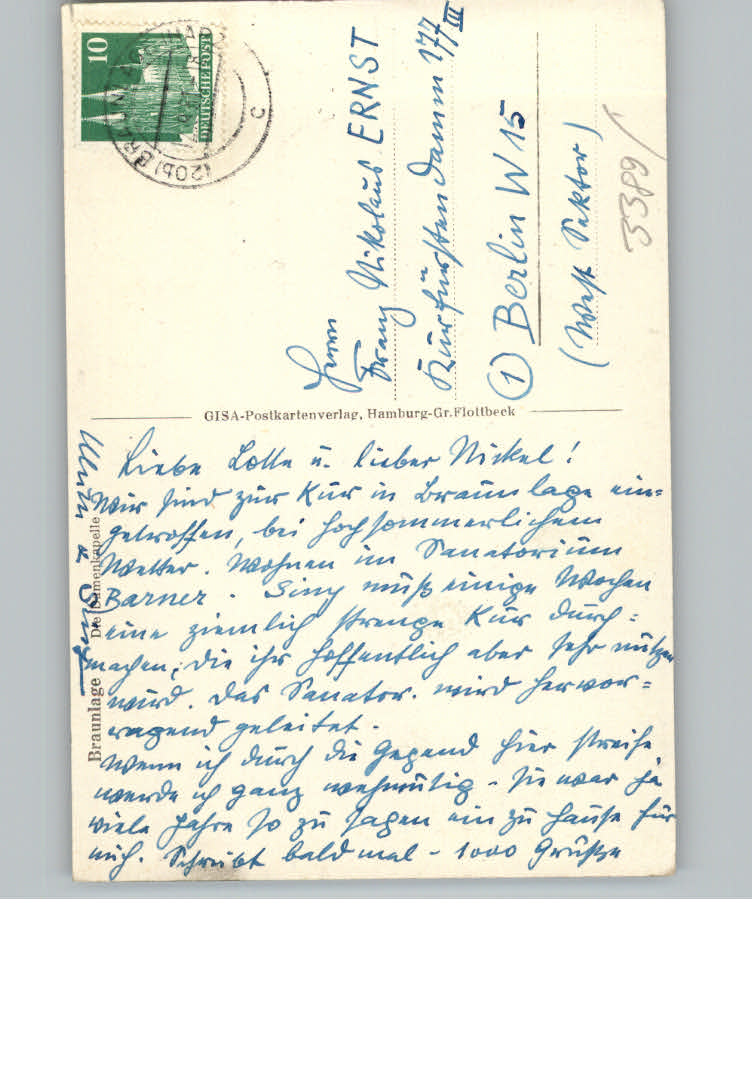 Liebe Lotte u. lieber Nickel!
Wir sind zur Kur in Braunlage ein=
getroffen, bei hochsommerlichem
Wetter. Wohnen im Sanatorium
Barner. Siny muß einige Wochen
eine ziemlich strenge Kur durch=
machen, die ihr hoffentlich aber sehr nützen
wird. Das Sanator. wird hervor=
ragend geleitet.
Wenn ich durch die Gegend hier streife
werde ich ganz wehmütig - sie war ja
viele Jahre so zu sagen ein zu Hause für
mich. Schreibt bald mal - 1000 Grüße
Braunlage Die Blumenkapelle
GISA-Postkartenverlag, Hamburg-Gr.Flottbeck
Herrn
Franz Nikolaus ERNST
Kurfürstendamm 177
III
(1) Berlin W 15
(West Sektor)
3389/
10
DEUTSCHE POST
(20b) BRAUNLAGE HARZ
c